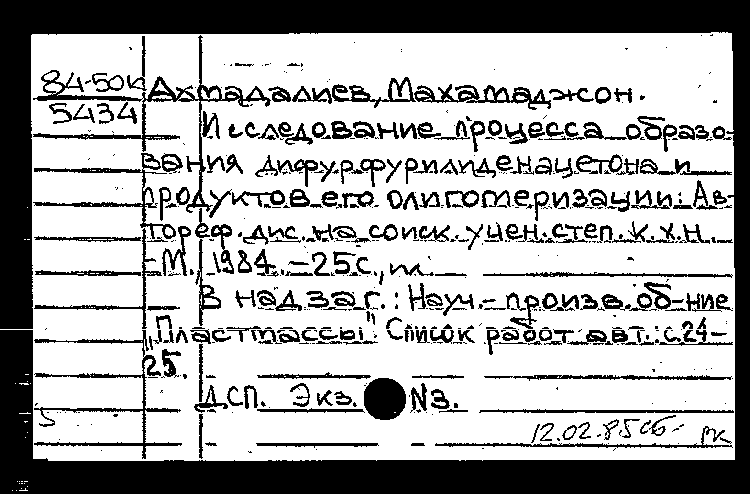 84-50к Ахмадалиев, Махамаджон.
5434 Исследование процесса образо-
вания дифурфурилиденацетона и
продуктов его олигомеризации: Ав-
тореф. дис. на соиск. учен. степ. к.х.н.
-М., 1984. -25с., ил.
В надзаг.: Науч.-произв. об-ние
"Пластмассы" Список работ авт.: с.24-
25.
ДСП. Экз. N3.
12.02.85